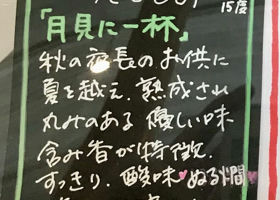 15度
「月見に一杯」
秋の夜長のお供に
夏を越え、熟成され
丸みのある優しい味
含み香が特徴.
すっきり.酸味♥ぬる燗♥